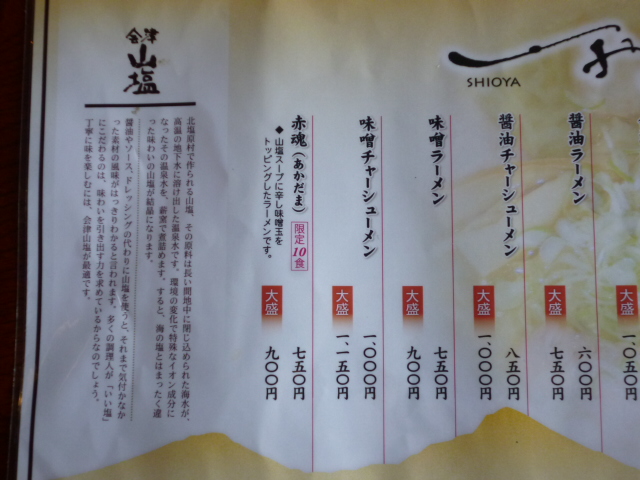 SHIOYA
大盛
一、〇五〇円
醤油ラーメン
六〇〇円
大盛
七五〇円
醤油チャーシューメン
八五〇円
大盛
一、〇〇〇円
味噌ラーメン
七五〇円
大盛
九〇〇円
味噌チャーシューメン
一、〇〇〇円
大盛
一、一五〇円
赤魂(あかだま)
限定10食
七五〇円
◆山塩スープに辛し味噌玉を
トッピングしたラーメンです。
大盛
九〇〇円
会津
山塩
北塩原村で作られる山塩、その原料は長い間地中に閉じ込められた海水が、
高温の地下水に溶け出した温泉水です。環境の変化で特殊なイオン成分に
なったその温泉水を、薪窯で煮詰めます。すると、海の塩とはまったく違
った味わいの山塩が結晶になります。
醤油やソース、ドレッシングの代わりに山塩を使うと、それまで気付かなか
った素材の風味がはっきりわかると言われます。多くの調理人が「いい塩」
にこだわるのは、味わいを引き出す力を求めているからなのでしょう。
丁寧に味を楽しむには、会津山塩が最適です。